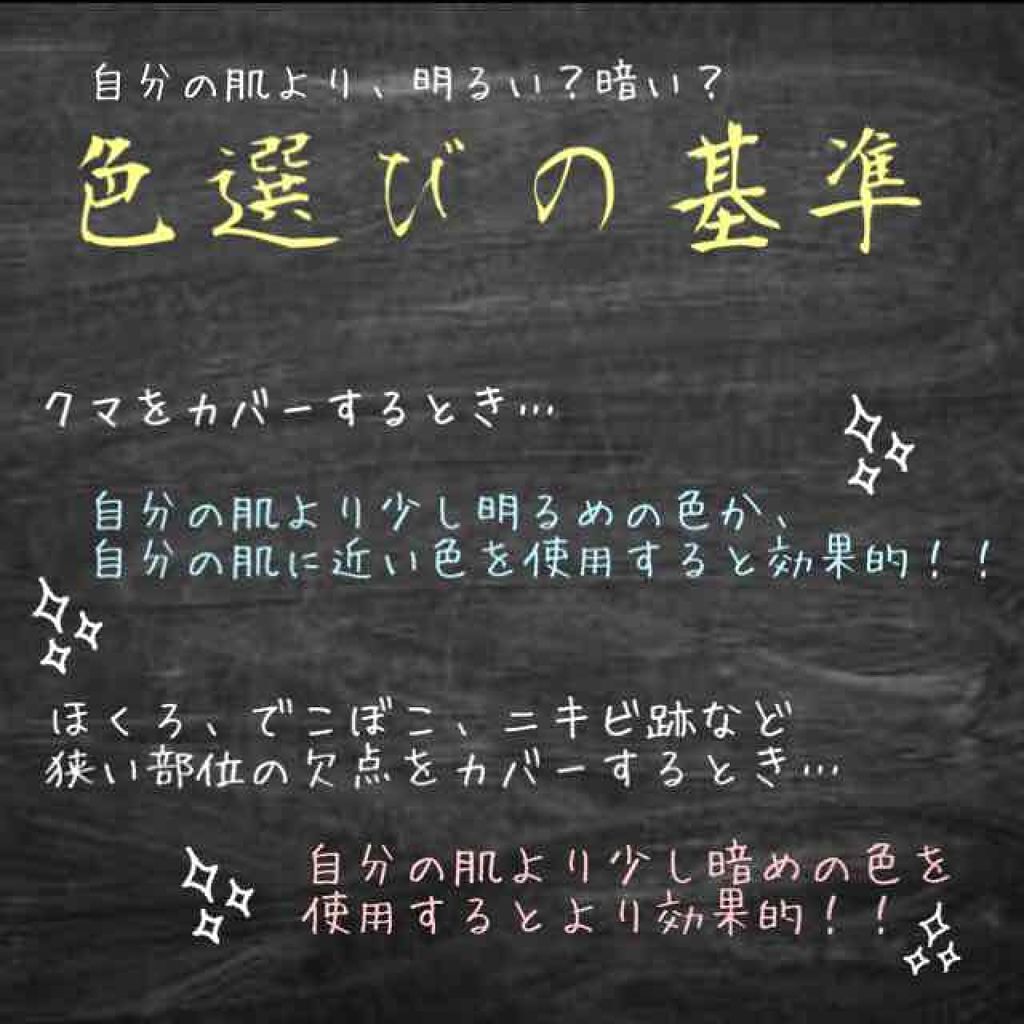 自分の肌より、明るい？暗い？
色選びの基準
クマをカバーするとき…
自分の肌より少し明るめの色か、
自分の肌に近い色を使用すると効果的！！
ほくろ、でこぼこ、ニキビ跡など
狭い部位の欠点をカバーするとき…
自分の肌より少し暗めの色を
使用するとより効果的！！